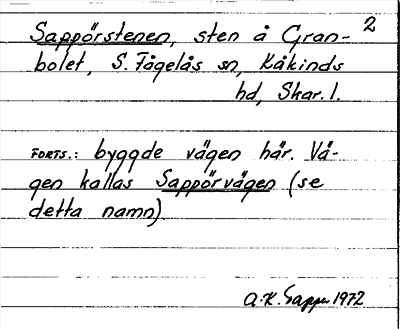 2
Sappörstenen, sten å Gran-
bolet, S. Fågelås sn, Kåkinds
hd, Skar. l.
FORTS.: byggde vägen här. Vä-
gen kallas Sappörvägen (se
detta namn)
A.K. 1972